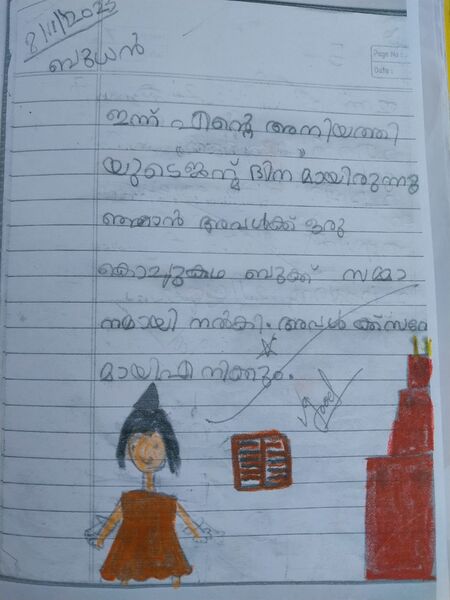 8/11/2025
ബുധൻ
Page No:
Date:
ഇന്ന് എന്റെ അനിയത്തി
യുടെ ജന്മ ദിന മായിരുന്നു
ഞാൻ അവൾക്ക് ഒരു
കൊച്ചുകഥ ബുക്ക് സമ്മാ
നമായി നൽകി. അവൾ ക്ക്
മായി
Good